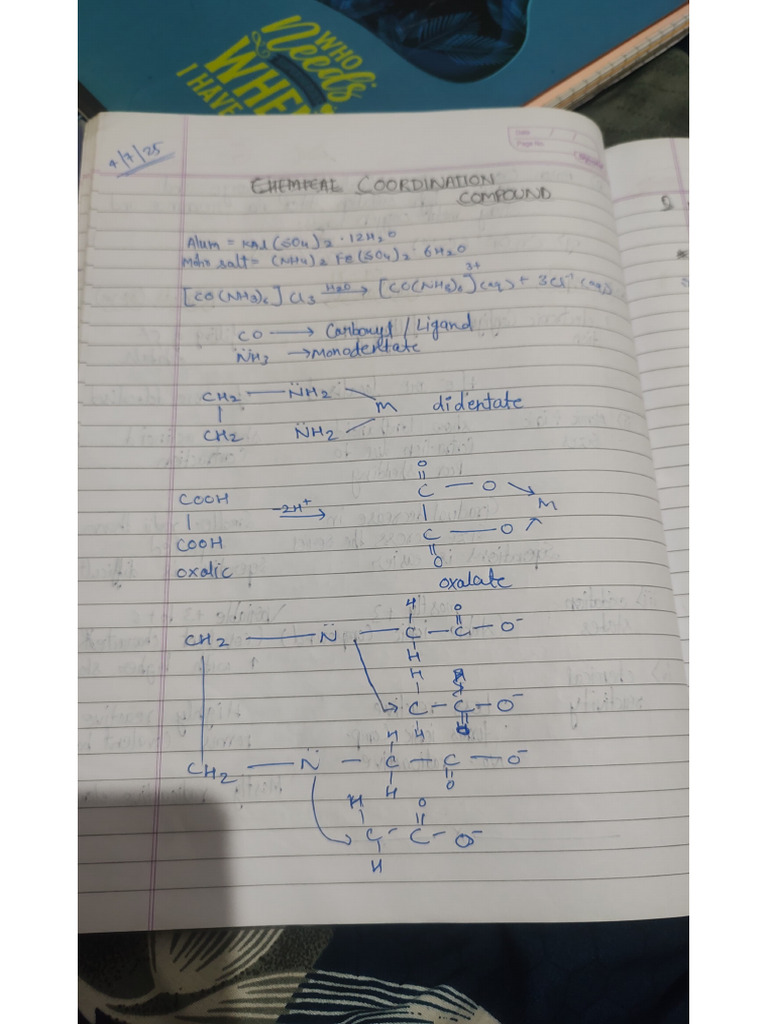 WHO
Needs
WHE
I HAVE
Date / /
Page No.
4/7/25
CHEMICAL COORDINATION
COMPOUND
Alum = KAl(SO4)2 · 12H2O
Mohr salt = (NH4)2 Fe(SO4)2 · 6H2O
[CO(NH3)6] Cl3 H2O→ [CO(NH3)6]3+ (aq) + 3Cl-1 (aq)
CO → Carbonyl / Ligand
N̈H3 → Monodentate
CH2 — N̈H2
| M didentate
CH2 N̈H2
O
||
COOH -2H+→ C — O → M
| |
COOH C — O
||
O
oxalic oxalate
H O
| ||
CH2 — N̈ — C — C — O-
|
H
H
|
C - C - O-
| ||
H H O
CH2 — N̈ — C — C — O-
| ||
H O
H O
| ||
C - C - O-
|
H